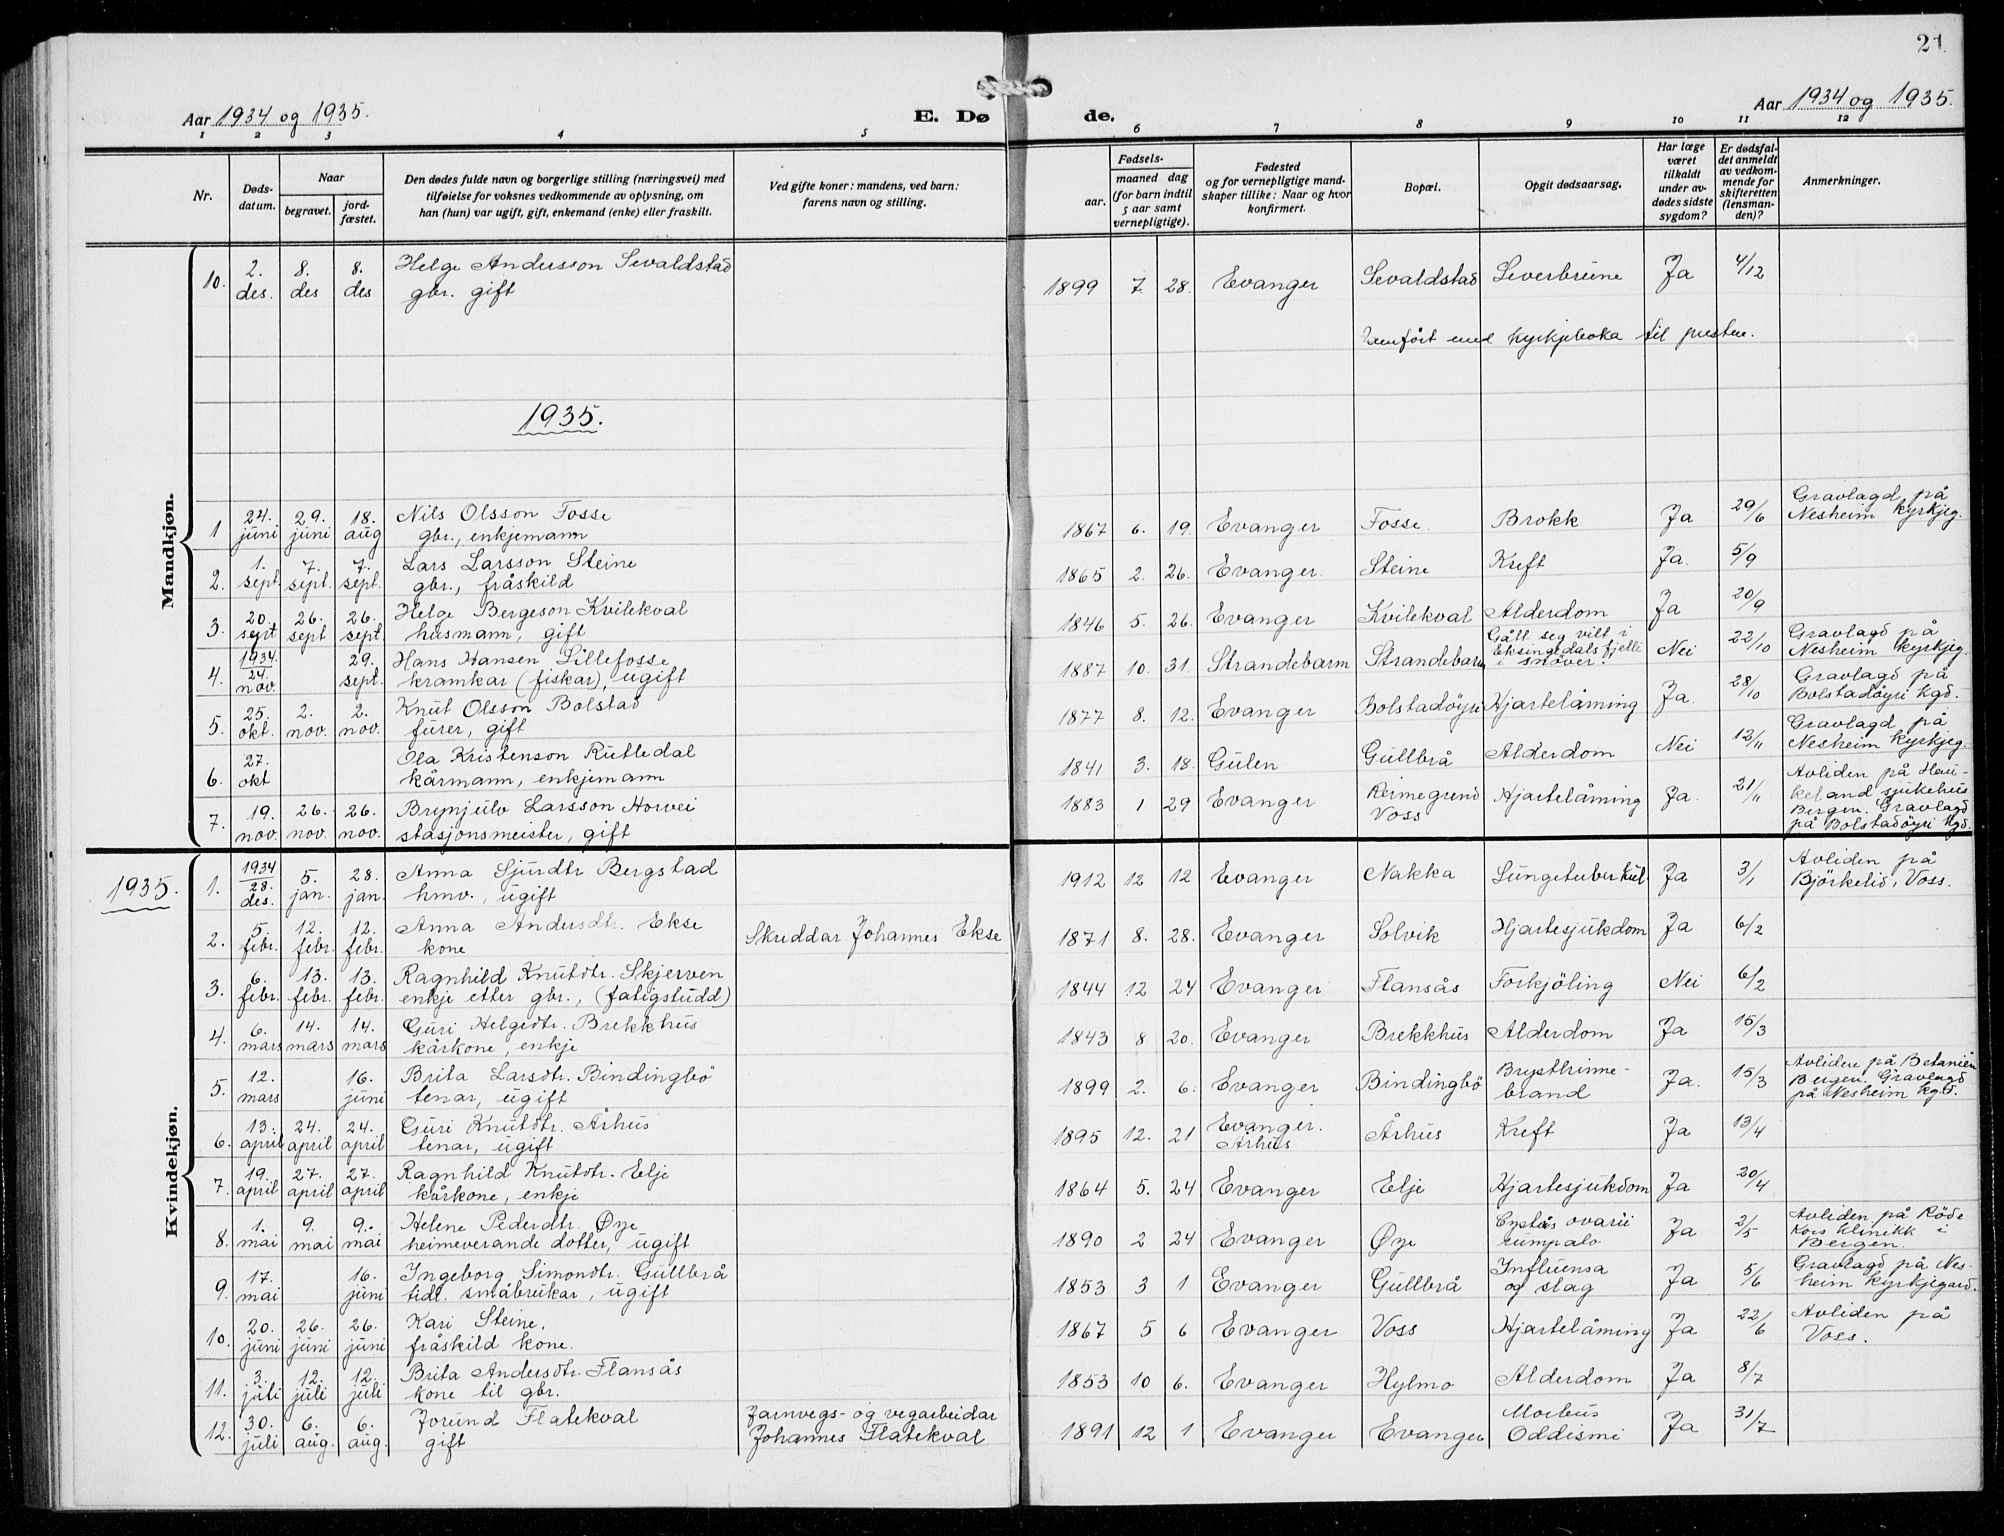 21
Aar 1934 og 1935.
E. Dø
de.
Aar 1934 og 1935.
1 2 3 4 5 6 7 8 9 10 11 12
Nr.
Døds-
datum.
Naar
begravet.
jord-
fæstet.
Den dødes fulde navn og borgerlige stilling (næringsvei) med
tilføielse for voksnes vedkommende av oplysning, om
han (hun) var ugift, gift, enkemand (enke) eller fraskilt.
Ved gifte koner: mandens, ved barn:
farens navn og stilling.
Fødsels-
aar.
maaned dag
(for barn indtil
5 aar samt
vernepligtige).
Fødested
og for vernepligtige mand-
skaper tillike: Naar og hvor
konfirmert.
Bopæl.
Opgit dødsaarsag.
Har læge
været
tilkaldt
under av-
dødes sidste
sygdom?
Er dødsfal-
det anmeldt
av vedkom-
mende for
skifteretten
(lensman-
den)?
Anmerkninger.
Mandkjøn.
10. 2. des. 8. des 8. des Helge Andersson Sevaldstad
gbr. gift
1899 7. 28. Evanger Sevaldstad Leverbreine Ja 4/12
Jemført med kyrkjeboka til presten.
1935.
1 24. juni 29. juni 18. aug Nils Olsson Fosse
gbr., enkjemann
1867 6. 19. Evanger Fosse. Brokk Ja 29/6 Gravlagd på
Nesheim kyrkjeg.
2. 1. sept. 7. sept. 7. sept. Lars Larsson Steine
gbr., fråskild
1865 2. 26. Evanger. Steine Kreft Ja. 5/9
3. 20. sept 26. sept 26. sept. Helge Bergeson Kvilekval
husmann, gift
1846 5. 26. Evanger Kvilekval Alderdom Ja 20/9
4. 1934 24. nov. 29. sept. Hans Hansen Lillefosse
kramkar (fiskar), ugift
1887 10. 31. Strandebarm Strandebarm Gått seg vilt i
Eksingedalsfjelli
i snöver. Nei 22/10 Gravlagd på
Nesheim kyrkjeg.
5. 25. okt. 2. nov. 2. nov. Knut Olsson Bolstad
furer, gift
1877 8. 12. Evanger Bolstadöyri Hjartelåming Ja. 28/10 Gravlagd på
Bolstadöyri kgd.
6. 27. okt Ola Kristenson Rutledal
kårmann, enkjemann
1841 3. 18. Gulen Gullbrå Alderdom Nei 12/11 Gravlagd på
Nesheim kyrkjeg.
7. 19. nov. 26. nov. 26. nov. Brynjulv Larsson Horvei
stasjonsmeister, gift
1883 1 29 Evanger Reimegrend
Voss Hjartelåming Ja. 21/11 Avliden på Hau-
keland sjukehus
Bergen. Gravlagd
på Bolstadöyri kgd.
Kvindekjøn.
1935.
1. 1934 28. des. 5. jan. 28. jan. Anna Sjurdtr Bergstad
hmv., ugift
1912 12 12 Evanger Nakka Lungetuberkul Ja 3/1 Avliden på
Björkelid, Voss.
2. 5. febr. 12. febr. 12. febr. Anna Andersdtr. Ekse
kone
Skreddar Johannes Ekse
1871 8. 28. Evanger Solvik Hjartesjukdom Ja 6/2
3. 6. febr. 13. febr. 13. febr. Ragnhild Knutdtr. Skjerven
enkje etter gbr., (fatigstudd)
1844 12 24 Evanger Flansås Forkjöling Nei 6/2
4. 6. mars 14. mars 14. mars Guri Helgedtr. Brekkhus
kårkone, enkje
1843 8 20. Evanger Brekkhus Alderdom Ja 15/3
5. 12. mars 16. juni Brita Larsdtr. Bindingbö
tenar, ugift
1899 2. 6. Evanger Bindingbö Brysthinne-
brand Ja. 15/3 Avliden på Betanien
Bergen. Gravlagd
på Nesheim kgd.
6. 13. april 24. april 24. april Guri Knutdtr. Århus
tenar, ugift
1895 12. 21 Evanger.
Århus Århus Kreft Ja 13/4
7. 19. april 27. april 27. april Ragnhild Knutdtr. Elje
kårkone, enkje
1864 5. 24 Evanger Elje Hjartesjukdom Ja 20/4
8. 1. mai 9. mai 9. mai Helene Pederdtr. Øye
heimeverande dotter, ugift
1890 2 24 Evanger Øye Cystis ovarii
rumpalo Ja 2/5 Avliden på Röde
Kors klinikk i
Bergen.
9. 17. mai 16. juni Ingeborg Simondtr. Gullbrå
tidl. småbrukar, ugift
1853 3 1 Evanger Gullbrå Influensa
og slag Ja 5/6 Gravlagd på Nes-
heim kyrkjegard.
10. 20. juni 26. juni 26. juni Kari Steine,
fråskild kone.
1867 5 6 Evanger Voss Hjartelåming Ja 22/6 Avliden på
Voss.
11. 3. juli 12. juli 12. juli Brita Andersdtr. Flansås
kone til gbr.
1853 10 6. Evanger Hylmo Alderdom Ja 8/7
12. 30. juli 6. aug. 6. aug. Jorund Flatekval
gift
Jarnvegs- og vegarbeidar
Johannes Flatekval
1891 12 1 Evanger Evanger Morbus
Oddismi Ja 31/7